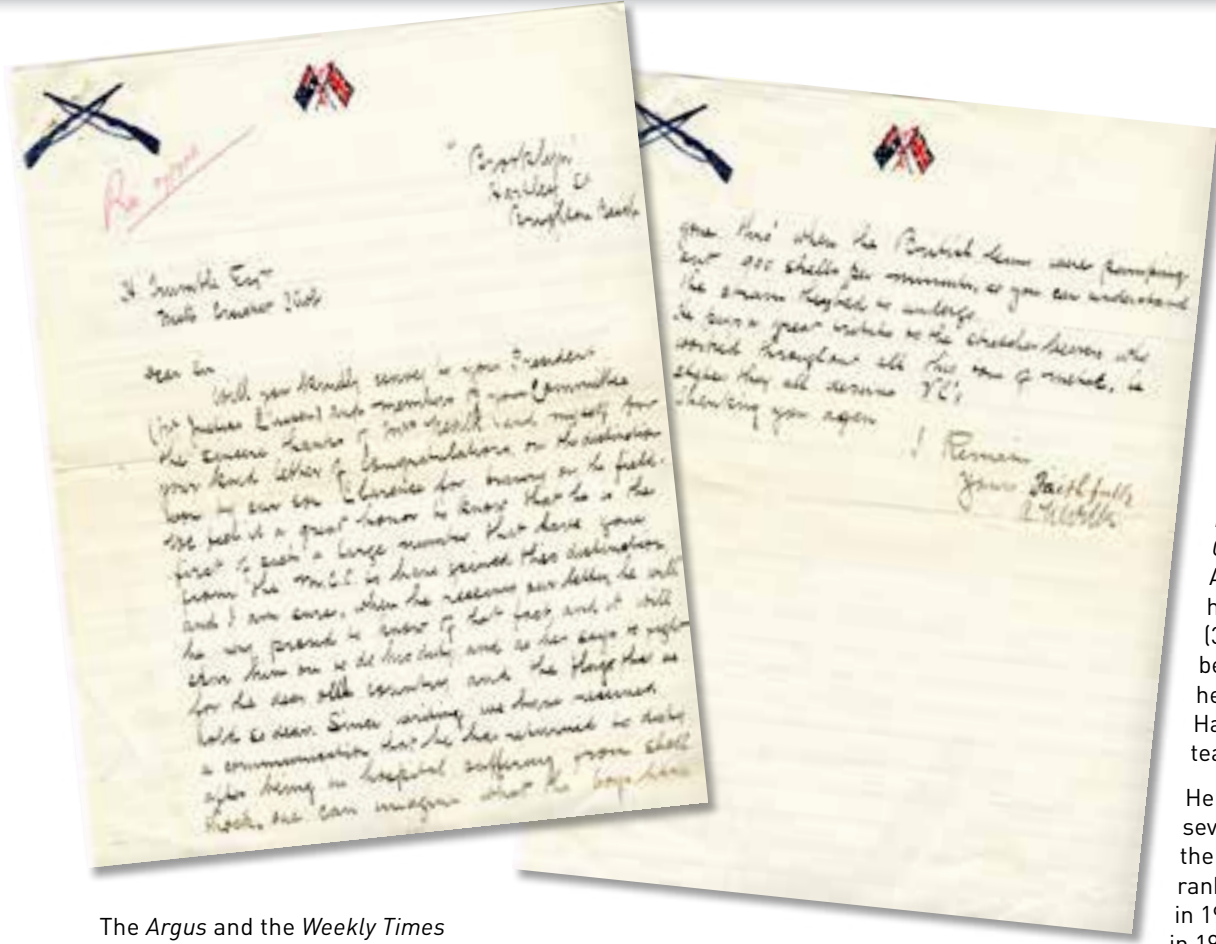 "Brooklyn"
Hartley St
Brighton Beach
H Trumble Esqr
Dear Sir
Will you kindly convey to your President
and members of your Committee
the sincere thanks of Mrs and myself for
your kind letter of Congratulations on the distinction
won by our son Clarence for bravery on the field.
We feel it a great honor to know that he is the
first of such a large number that have gone
from the M.C.C. to have gained this distinction
and I am sure, when he receives our letter he will
be very proud to know of that fact and it will
him on to do his duty and as he says to fight
for the dear old country and the flags that we
hold so dear. Since writing we have received
a communication that he has returned to duty
after being in hospital suffering from shell
shock, one can imagine what the boys have
gone thro' when the British were pumping
out 900 shells per minute, as you can understand
the
the great the stretcher bearers who
worked throughout all this , he
says they all deserve VC's
thanking you again
I Remain
Yours Faithfully
The Argus and the Weekly Times
(3
be
he
Ha
tea
He
sev
the
rank
in 19
in 19